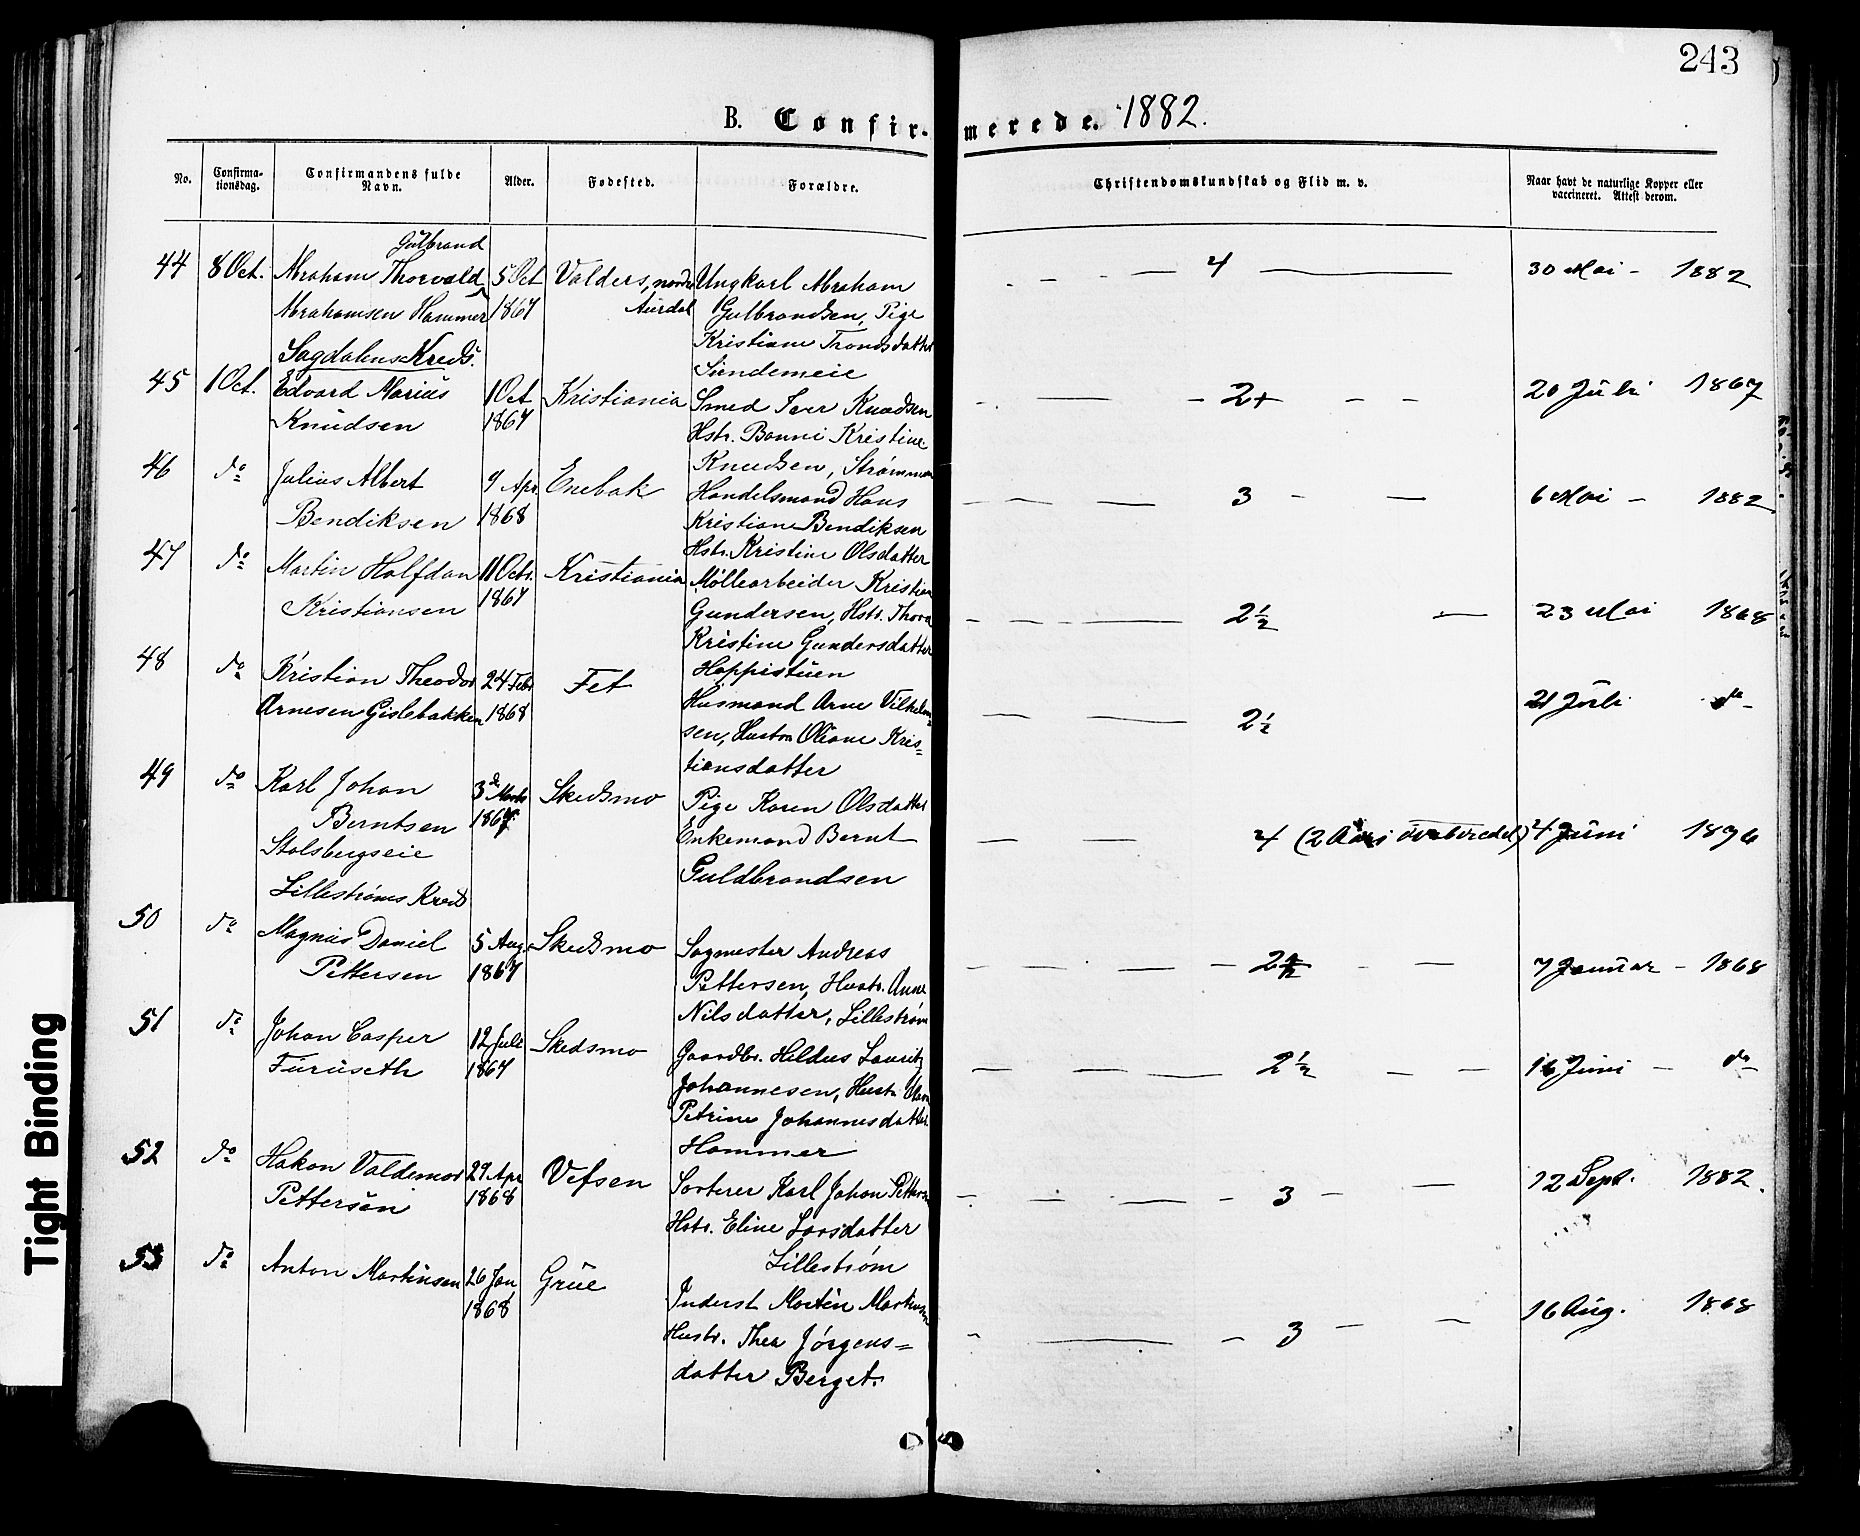 243
B. Confirmerede. 1882.
No. Confirmationsdag. Confirmandens fulde Navn. Alder. Fødested. Forældre. Christendomskundskab og Flid m. v. Naar havt de naturlige Kopper eller vaccineret. Attest derom.
Gulbrand
44 8 Oct. Abraham Thorvald 5 Oct Valders, nordre Ungkarl Abraham — 4 — 30 Mai - 1882
Abrahamsen Hammer 1867 Aurdal Gulbrandsen, Pige
Kristiane Trondsdatter
Sagdalens Kreds. Sundemeie
45 1 Oct. Edvard Marius 1 Oct Kristiania Smed Iver Knudsen — 2+ — 20 Juli 1867
Knudsen 1867 Hstr. Bonni Kristine
Knudsen, Strømmen
46 do Julius Albert 9 Apr. Enebak Handelsmand Hans — 3 — 6 Mai - 1882
Bendiksen 1868 Kristian Bendiksen
Hstr. Kristine Olsdatter
47 do Martin Halfdan 11 Octr. Kristiania Møllearbeider Kristian — 2½ — 23 Mai 1868
Kristiansen 1867 Gundersen, Hstr. Thora
Kristine Gundersdatter
Hoppistuen
48 do Kristian Theodor 24 Febr Fet Husmand Arne Vilhelm- — 2½ 21 Juli do
Arnesen Gislebakken 1868 sen, Hustru Oliane Kris=
tiansdatter
49 do Karl Johan 3de Marts Skedsmo Pige Karen Olsdatter — 4 (2 Aar overberedet) 4 Juni 1876
Berntsen 1867 Enkemand Bernt
Stalsbergeie Guldbrandsen
Lillestrøms Kreds
50 do Magnus Daniel 5 Aug. Skedsmo Sagmester Andreas — 2½ — 7 Januar - 1868
Pettersen 1867 Pettersen, Hustr. Anne
Nilsdatter, Lillestrøm
51 do Johan Casper 12 Juli Skedsmo Gaardbr. Heldus Lauritz — 2½ — 16 Juni - do
Furuseth 1867 Johannesen, Hustr.
Petrine Johannesdatter
Hammer
52 do Hakon Valdemar 29 Apr Vefsen Sorterer Karl Johan Pettersen — 3 — 12 Sept. 1882.
Petterson 1868 Hstr. Eline Larsdatter
Lillestrøm
53 do Anton Martinsen 26 Jan Grue Inderst Martin Martinsen — 3 — 16 Aug. 1868
1868 Hustr. Thea Jørgens=
datter Berget.
Tight Binding